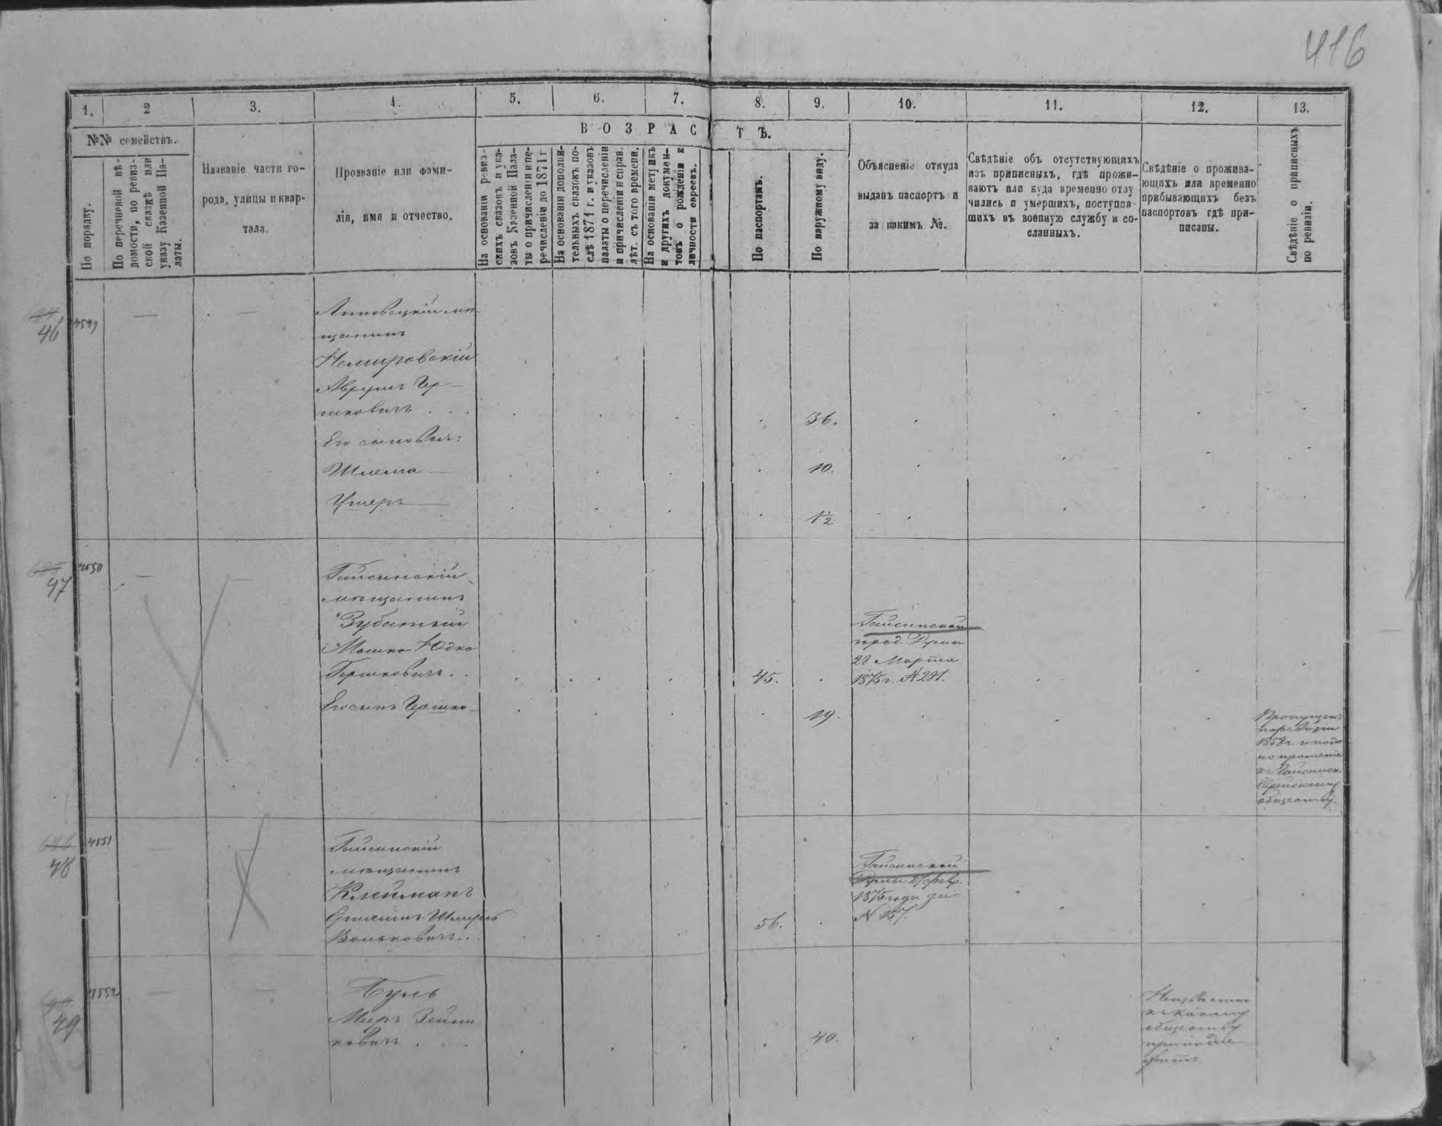 416
1.
2
3.
4.
5.
6.
7.
8.
9.
10.
11.
12.
13.
№№ семействъ.
ВОЗРАСТЪ.
По порядку.
По перечневой вѣ-
домости, по ревиз-
ской сказкѣ или
указу Казенной Па-
латы.
Названіе части го-
рода, улицы и квар-
тала.
Прозваніе или фами-
лія, имя и отчество.
На основаніи ревиз-
скихъ сказокъ и ука-
зовъ Казенной Пала-
ты о причисленіи и пе-
речисленіи до 1871 г
На основаніи дополни-
тельныхъ сказокъ по-
слѣ 1871 г. и указовъ
палаты о перечисленіи
и причисленіи и справ.
лѣт. съ того времени.
На основаніи метрикъ
и другихъ докумен-
товъ о рожденіи и
личности евреевъ.
По паспортамъ.
По наружному виду.
Объясненіе откуда
выданъ паспортъ и
за какимъ №.
Свѣдѣніе объ отсутствующихъ
изъ приписныхъ, гдѣ прожи-
ваютъ или куда временно отлу
чились и умершихъ, поступив-
шихъ въ военную службу и со-
сланныхъ.
Свѣдѣніе о прожива-
ющихъ или временно
прибывающихъ безъ
паспортовъ гдѣ при-
писаны.
Свѣдѣніе о приписныхъ
по ревизіи.
46
4549
мѣ-
щанинъ
Немировскій
Аврумъ Гер-
шковичъ
36.
Его сыновья:
Шлема
10.
Ушеръ
1/2
47
4550
Гайсинскій
мѣщанинъ
Зубатый
Мошко Юдко
Гершковичъ
45.
Гайсинской
город. Думы
28 Марта
1875 г. № 281.
Его сынъ Гершко
19.
48
4551
Гайсинскій
мѣщанинъ
Клейманъ
Шмуль
Вольковичъ
56.
Гайсинской
Думы
1875 года за
№ 187.
49
4552
Буль
Мееръ
ковичъ
40.
Неизвѣстно
къ какому
обществу
принадле-
житъ